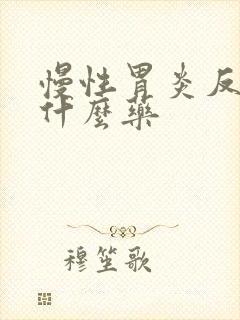 慢性胃炎反
什麼藥
穆笙歌